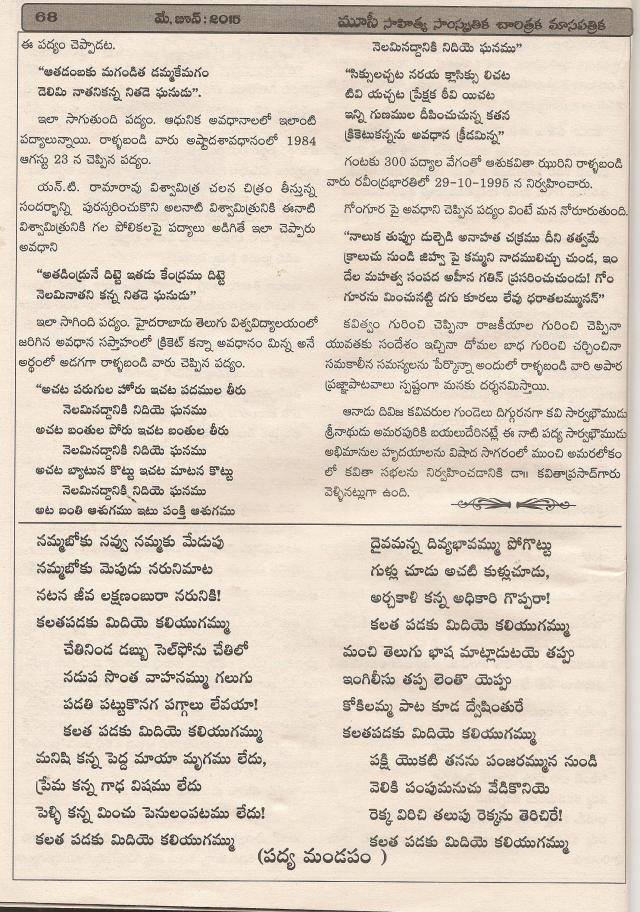 68 మే, జూన్ : 2015 మూసీ సాహిత్య సాంస్కృతిక చారిత్రక మాసపత్రిక
ఈ పద్యం చెప్పాడట.
"ఆతడంబకు మగండిత డమ్మకేమగం
డెలిమి నాతనికన్న నితడె ఘనుడు".
ఇలా సాగుతుంది పద్యం. ఆధునిక అవధానాలలో ఇలాంటి
పద్యాలున్నాయి. రాళ్ళబండి వారు అష్టాదశావధానంలో 1984
ఆగస్టు 23 న చెప్పిన పద్యం.
యన్.టి. రామారావు విశ్వామిత్ర చలన చిత్రం తీస్తున్న
సందర్భాన్ని పురస్కరించుకొని అలనాటి విశ్వామిత్రునికి ఈనాటి
విశ్వామిత్రునికి గల పోలికలపై పద్యాలు అడిగితే ఇలా చెప్పారు
అవధాని
"అతడింద్రునే దిట్టె ఇతడు కేంద్రము దిట్టె
నెలమినాతని కన్న నితడె ఘనుడు"
ఇలా సాగింది పద్యం. హైదరాబాదు తెలుగు విశ్వవిద్యాలయంలో
జరిగిన అవధాన సప్తాహంలో క్రికెట్ కన్నా అవధానం మిన్న అనే
అర్థంలో అడగగా రాళ్ళబండి వారు చెప్పిన పద్యం.
"అచట పరుగుల హోరు ఇచట పదముల తీరు
నెలమినద్దానికి నిదియె ఘనము
అచట బంతుల పోరు ఇచట బంతుల తీరు
నెలమినద్దానికి నిదియె ఘనము
అచట బ్యాటున కొట్టు ఇచట మాటన కొట్టు
నెలమినద్దానికి నిదియె ఘనము
అట బంతి ఆశుగము ఇటు పంక్తి ఆశుగము
నెలమినద్దానికి నిదియె ఘనము"
"సిక్సులచ్చట నరయ క్లాసిక్సు లిచట
టివి యచ్చట ప్రేక్షక ఠీవి యిచట
ఇన్ని గుణముల దీపించుచున్న కతన
క్రికెటుకన్నను అవధాన క్రీడమిన్న"
గంటకు 300 పద్యాల వేగంతో ఆశుకవితా ఝరిని రాళ్ళబండి
వారు రవీంద్రభారతిలో 29-10-1995 న నిర్వహించారు.
గోంగూర పై అవధాని చెప్పిన పద్యం వింటే మన నోరూరుతుంది.
"నాలుక తుప్పుం డుల్చెడి అనాహత చక్రము దీని తత్వమే
క్రాలుచు నుండి జిహ్వ పై కమ్మని నాదములిచ్చు చుండ, ఇం
దేల మహత్వ సంపద అహీన గతిన్ ప్రసరించుచుండు! గోం
గూరను మించునట్టి దగు కూరలు లేవు ధరాతలమ్మునన్"
కవిత్వం గురించి చెప్పినా రాజకీయాల గురించి చెప్పినా
యువతకు సందేశం ఇచ్చినా దోమల బాధ గురించి చర్చించినా
సమకాలీన సమస్యలను పేర్కొన్నా అందులో రాళ్ళబండి వారి అపార
ప్రజ్ఞాపాటవాలు స్పష్టంగా మనకు దర్శనమిస్తాయి.
ఆనాడు దివిజ కవివరుల గుండెలు దిగ్గురనగా కవి సార్వభౌముడు
శ్రీనాథుడు అమరపురికి బయలుదేరినట్లే ఈ నాటి పద్య సార్వభౌముడు
అభిమానుల హృదయాలను విషాద సాగరంలో ముంచి అమరలోకం
లో కవితా సభలను నిర్వహించడానికి డా॥ కవితాప్రసాద్‌గారు
వెళ్ళినట్లుగా ఉంది.
నమ్మబోకు నవ్వు నమ్మకు మేడుపు
నమ్మబోకు మెపుడు నరునిమాట
నటన జీవ లక్షణంబురా నరునికి!
కలతపడకు మిదియె కలియుగమ్ము
చేతినిండ డబ్బు సెల్‌ఫోను చేతిలో
నడుప సొంత వాహనమ్ము గలుగు
పడతి పట్టుకొనగ పగ్గాలు లేవయా!
కలత పడకు మిదియె కలియుగమ్ము
మనిషి కన్న పెద్ద మాయా మృగము లేదు,
ప్రేమ కన్న గాఢ విషము లేదు
పెళ్ళి కన్న మించు పెనులంపటము లేదు!
కలత పడకు మిదియె కలియుగమ్ము
దైవమన్న దివ్యభావమ్ము పోగొట్టు
గుళ్లు చూడు అచటి కుళ్లుచూడు,
అర్చకాళి కన్న అధికారి గొప్పరా!
కలత పడకు మిదియె కలియుగమ్ము
మంచి తెలుగు భాష మాట్లాడుటయె తప్పు
ఇంగిలీసు తప్ప లెంతొ యెప్పు
కోకిలమ్మ పాట కూడ ద్వేషింతురే
కలతపడకు మిదియె కలియుగమ్ము
పక్షి యొకటి తనను పంజరమ్మున నుండి
వెలికి పంపుమనుచు వేడికొనియె
రెక్క విరిచి తలుపు రెక్కను తెరిచిరే!
కలత పడకు మిదియె కలియుగమ్ము
(పద్య మండపం )